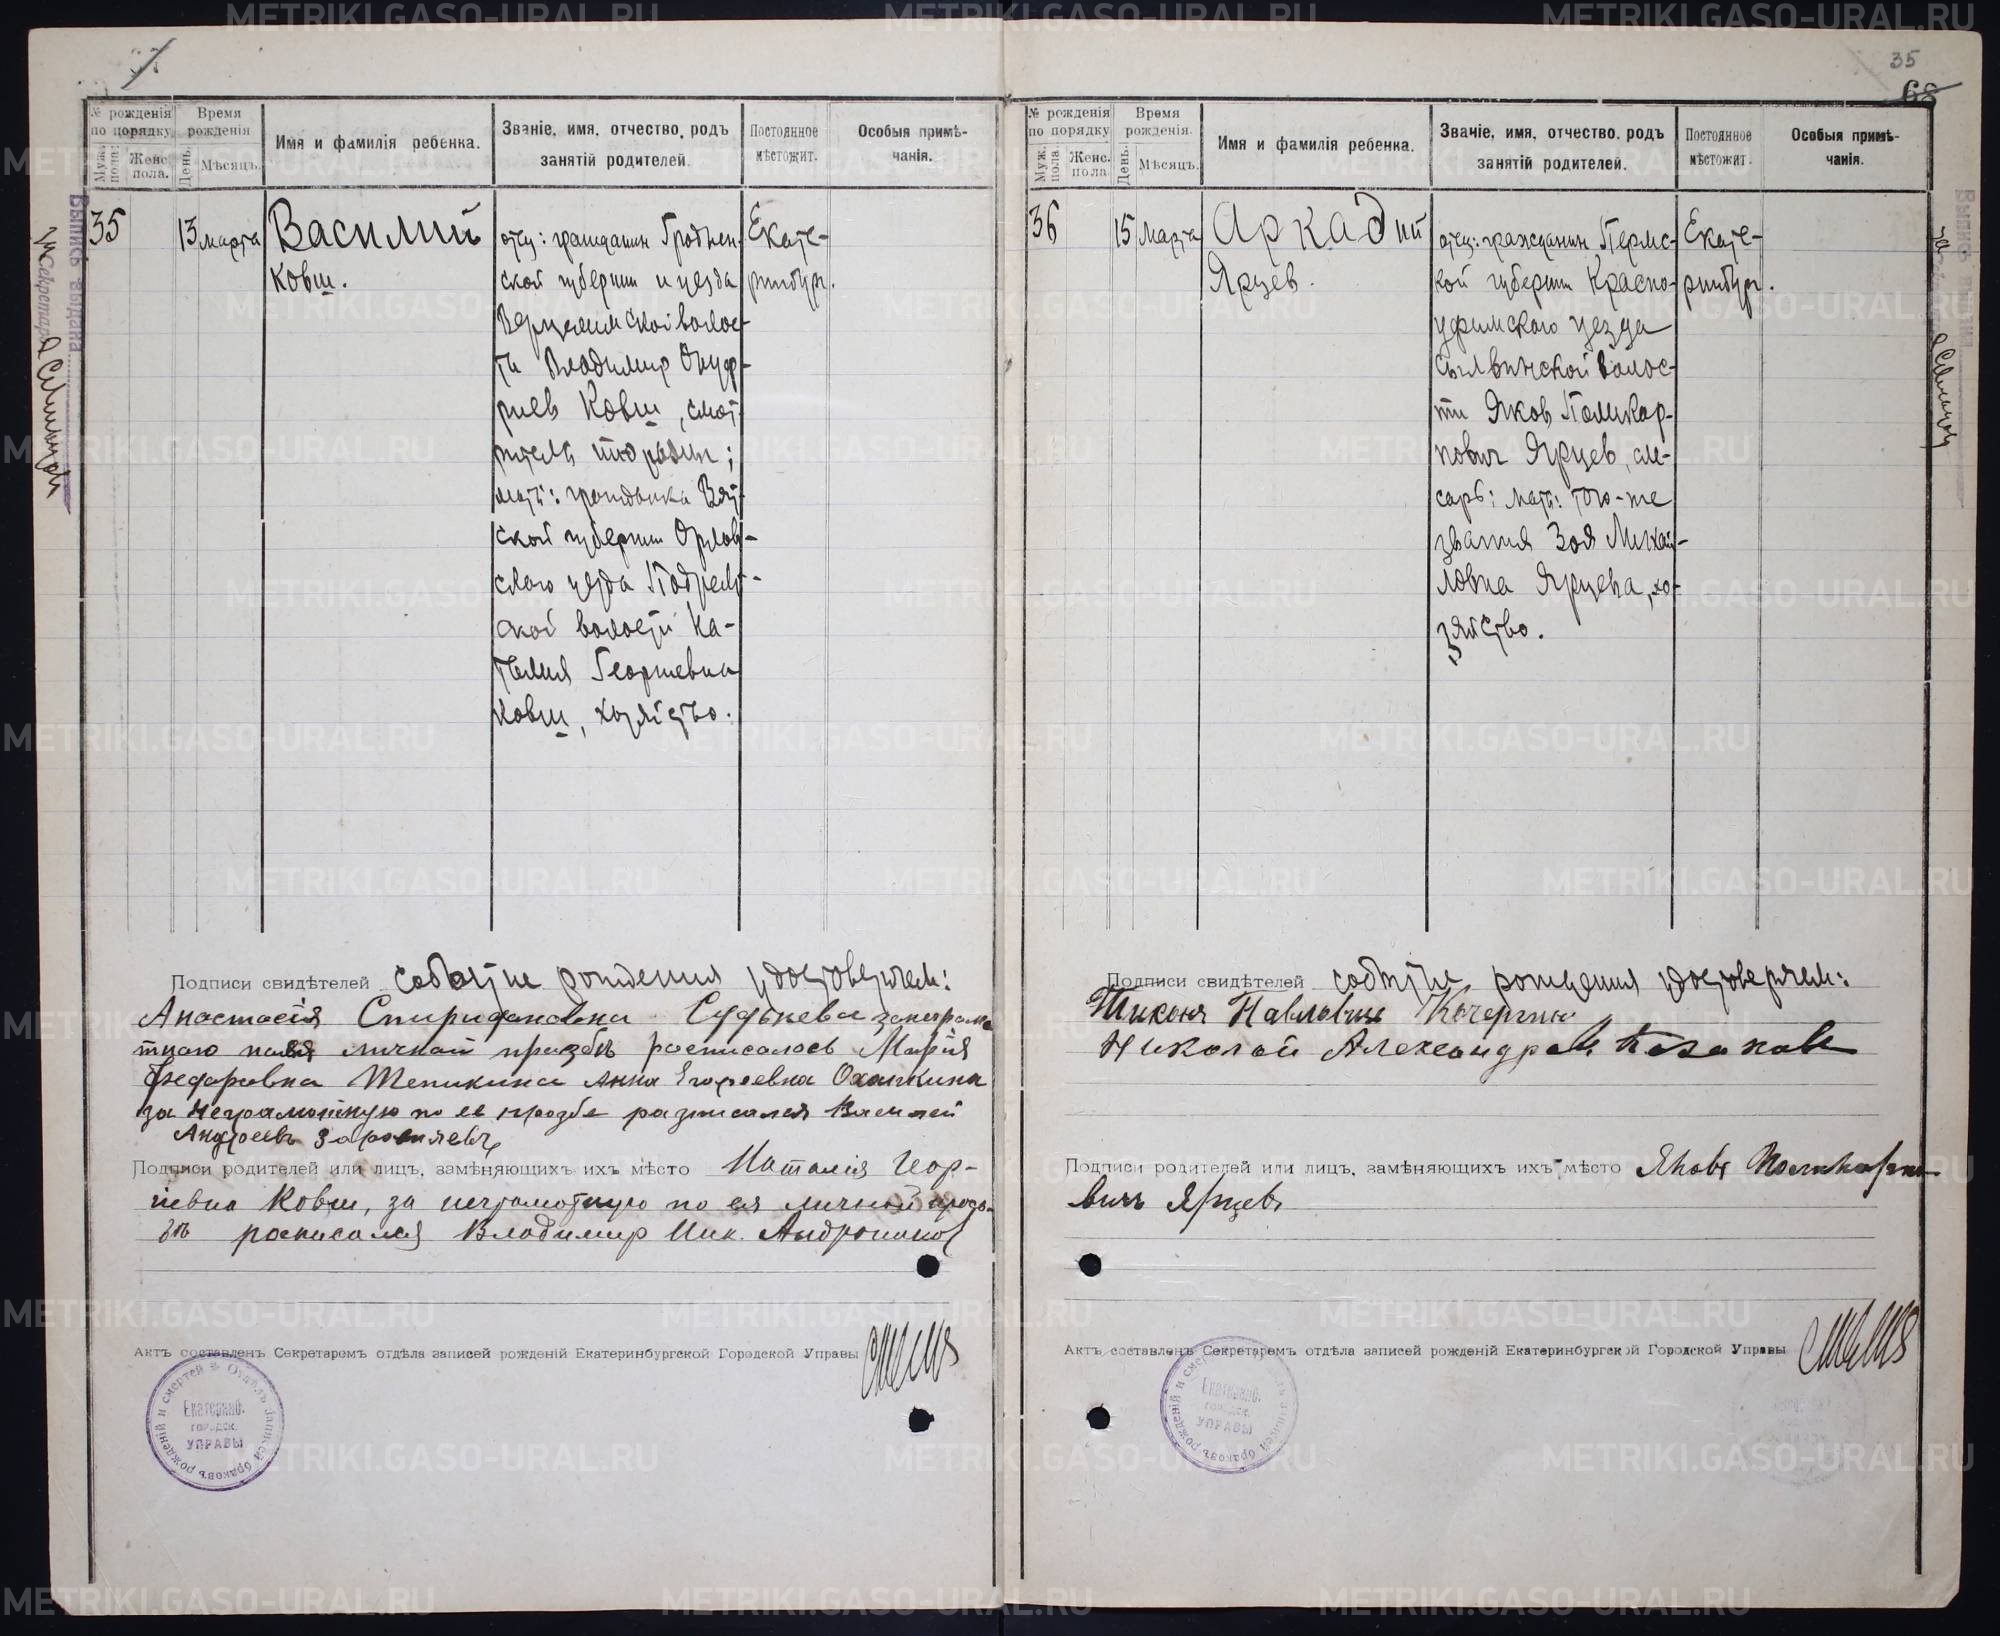 35
68
№ рожденія по порядку.
Муж. пола.
Женс. пола.
Время рожденія
День.
Мѣсяцъ.
Имя и фамилія ребенка.
Званіе, имя, отчество, родъ
занятій родителей.
Постоянное
мѣстожит.
Особыя примѣ-
чанія.
35
13 марта
Василий
Ковш.
отец: гражданин Гроднен-
ской губернии и уезда
волос-
ти Владимир Онуф-
риев Ковш, смот-
ритель тюрьмы;
мать: гражданка Вят-
ской губернии Орлов-
ского уезда
ской волости На-
талия Георгиевна
Ковш, хозяйство.
Екате-
ринбург.
Выпись выдана
Секретарь
Подписи свидѣтелей событие рождения удостоверяем:
Анастасія Спиридоновна
личной прозбѣ росписалось Марія
Федоровна Анна Егоровна
за неграмотную по ее прозбе разписался Василей
Андреевъ
Подписи родителей или лицъ, замѣняющихъ ихъ мѣсто Наталія Геор-
гіевна Ковш, за неграмотную по ея личной прось-
бѣ росписался Владимир Ник.
Актъ составленъ Секретаремъ отдѣла записей рожденій Екатеринбургской Городской Управы
Отдѣлъ записей браковъ рожденій и смертей
Екатеринб.
городск.
УПРАВЫ
№ рожденія
по порядку
Муж. пола.
Женс. пола
Время
рожденія.
День.
Мѣсяцъ.
Имя и фамилія ребенка.
Званіе, имя, отчество, родъ
занятій родителей.
Постоянное
мѣстожит.
Особыя примѣ-
чанія.
36
15 марта
Аркадий
Ярцев.
отец: гражданин Пермс-
кой губернии Красно-
уфимского уезда
Сылвинской волос-
ти Яков Поликар-
пович Ярцев, сле-
сарь; мать: того-же
звания Зоя Михай-
ловна Ярцева, хо-
зяйство.
Екате-
ринбург.
Выпись выдана
Подписи свидѣтелей событие рождения удостоверяем:
Тихон Павлович Кочергин
Николай Александров Казаков
Подписи родителей или лицъ, замѣняющихъ ихъ мѣсто Яковъ Поликарпо-
вичъ Ярцевъ
Актъ составленъ Секретаремъ отдѣла записей рожденій Екатеринбургской Городской Управы
Екатеринб.
городск.
УПРАВЫ
METRIKI.GASO-URAL.RU